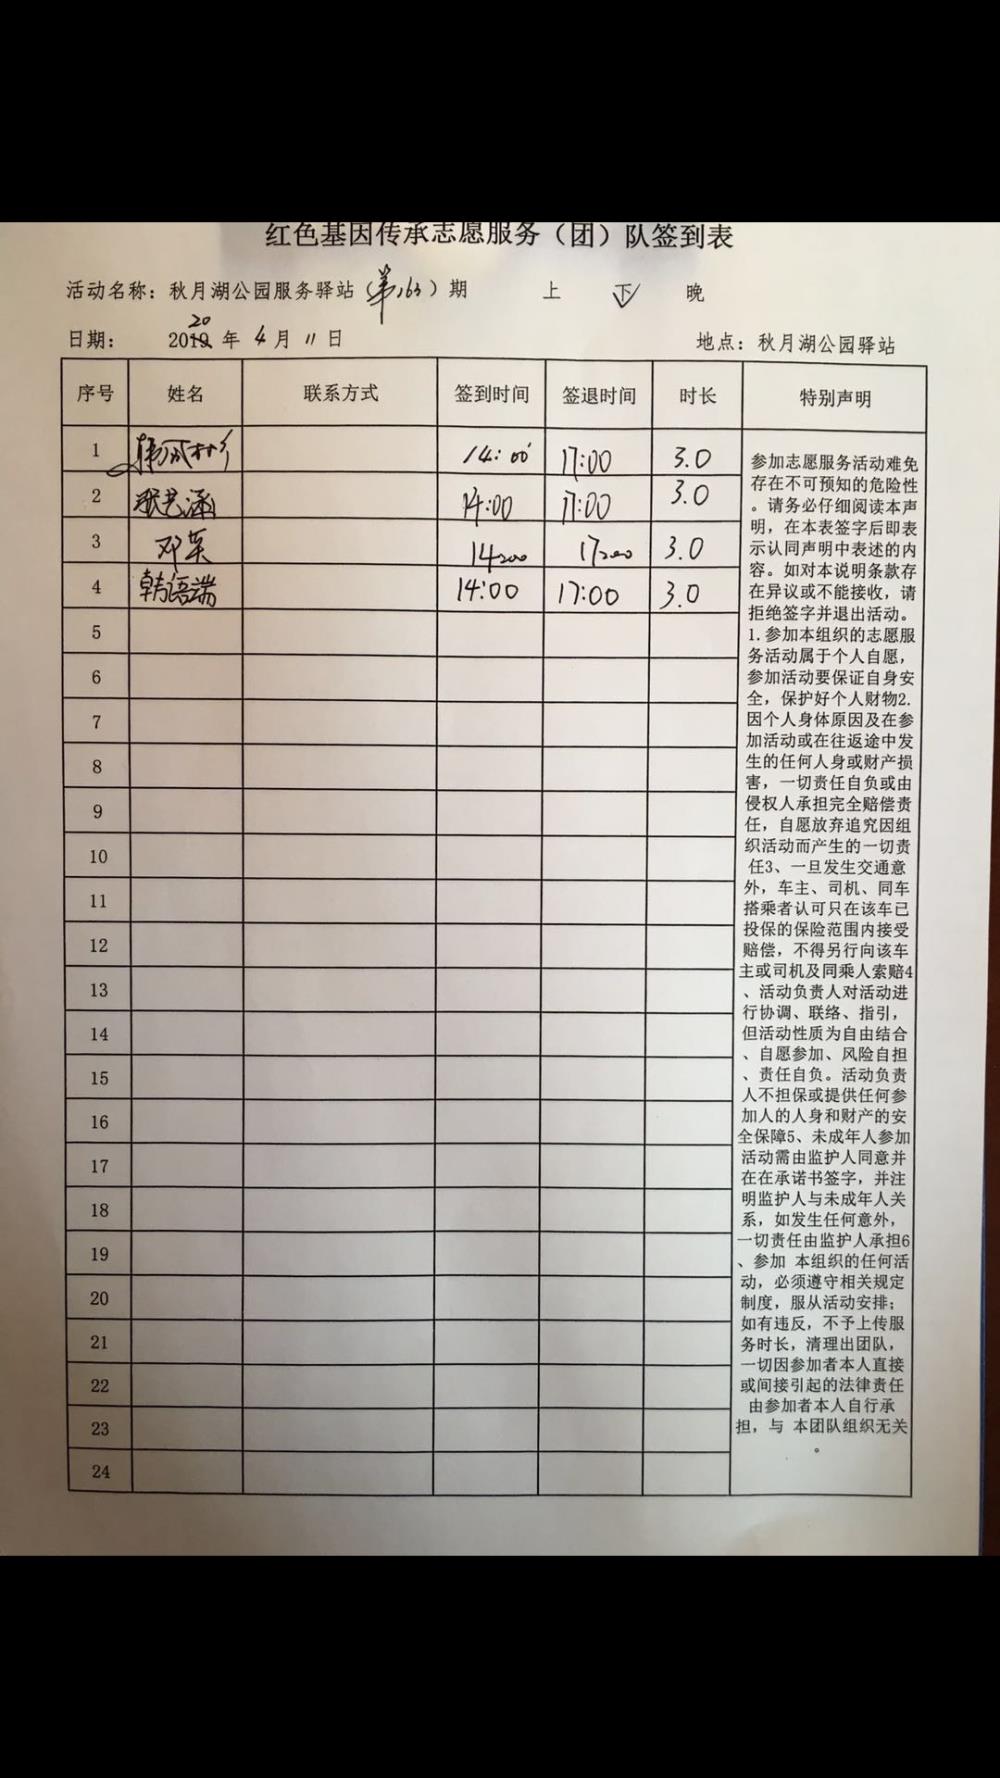 红色基因传承志愿服务（团）队签到表
活动名称：秋月湖公园服务驿站（第163）期 上 下 晚
日期： 2020年 4月 11日 地点：秋月湖公园驿站
序号 姓名 联系方式 签到时间 签退时间 时长 特别声明
1 14:00 17:00 3.0
2 张艺涵 14:00 17:00 3.0
3 邓英 14:00 17:00 3.0
4 韩语端 14:00 17:00 3.0
5
6
7
8
9
10
11
12
13
14
15
16
17
18
19
20
21
22
23
24
参加志愿服务活动难免
存在不可预知的危险性
。请务必仔细阅读本声
明，在本表签字后即表
示认同声明中表述的内
容。如对本说明条款存
在异议或不能接收，请
拒绝签字并退出活动。
1.参加本组织的志愿服
务活动属于个人自愿，
参加活动要保证自身安
全，保护好个人财物2.
因个人身体原因及在参
加活动或在往返途中发
生的任何人身或财产损
害，一切责任自负或由
侵权人承担完全赔偿责
任，自愿放弃追究因组
织活动而产生的一切责
任3、一旦发生交通意
外，车主、司机、同车
搭乘者认可只在该车已
投保的保险范围内接受
赔偿，不得另行向该车
主或司机及同乘人索赔4
、活动负责人对活动进
行协调、联络、指引，
但活动性质为自由结合
、自愿参加、风险自担
、责任自负。活动负责
人不担保或提供任何参
加人的人身和财产的安
全保障5、未成年人参加
活动需由监护人同意并
在在承诺书签字，并注
明监护人与未成年人关
系，如发生任何意外，
一切责任由监护人承担6
、参加 本组织的任何活
动，必须遵守相关规定
制度，服从活动安排；
如有违反，不予上传服
务时长，清理出团队，
一切因参加者本人直接
或间接引起的法律责任
由参加者本人自行承
担，与 本团队组织无关
。